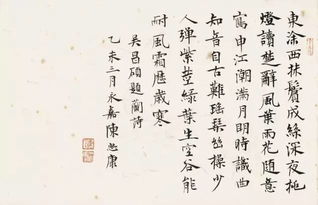 東涂西抹鬢成絲深夜挑
燈讀楚辭風葉雨花隨意
寫申江潮滿月明時識曲
知音自古難瑤琴幽操少
人彈紫莖綠葉生空谷能
耐風霜歷歲寒
吳昌碩題蘭詩
乙未三月永嘉陳思康